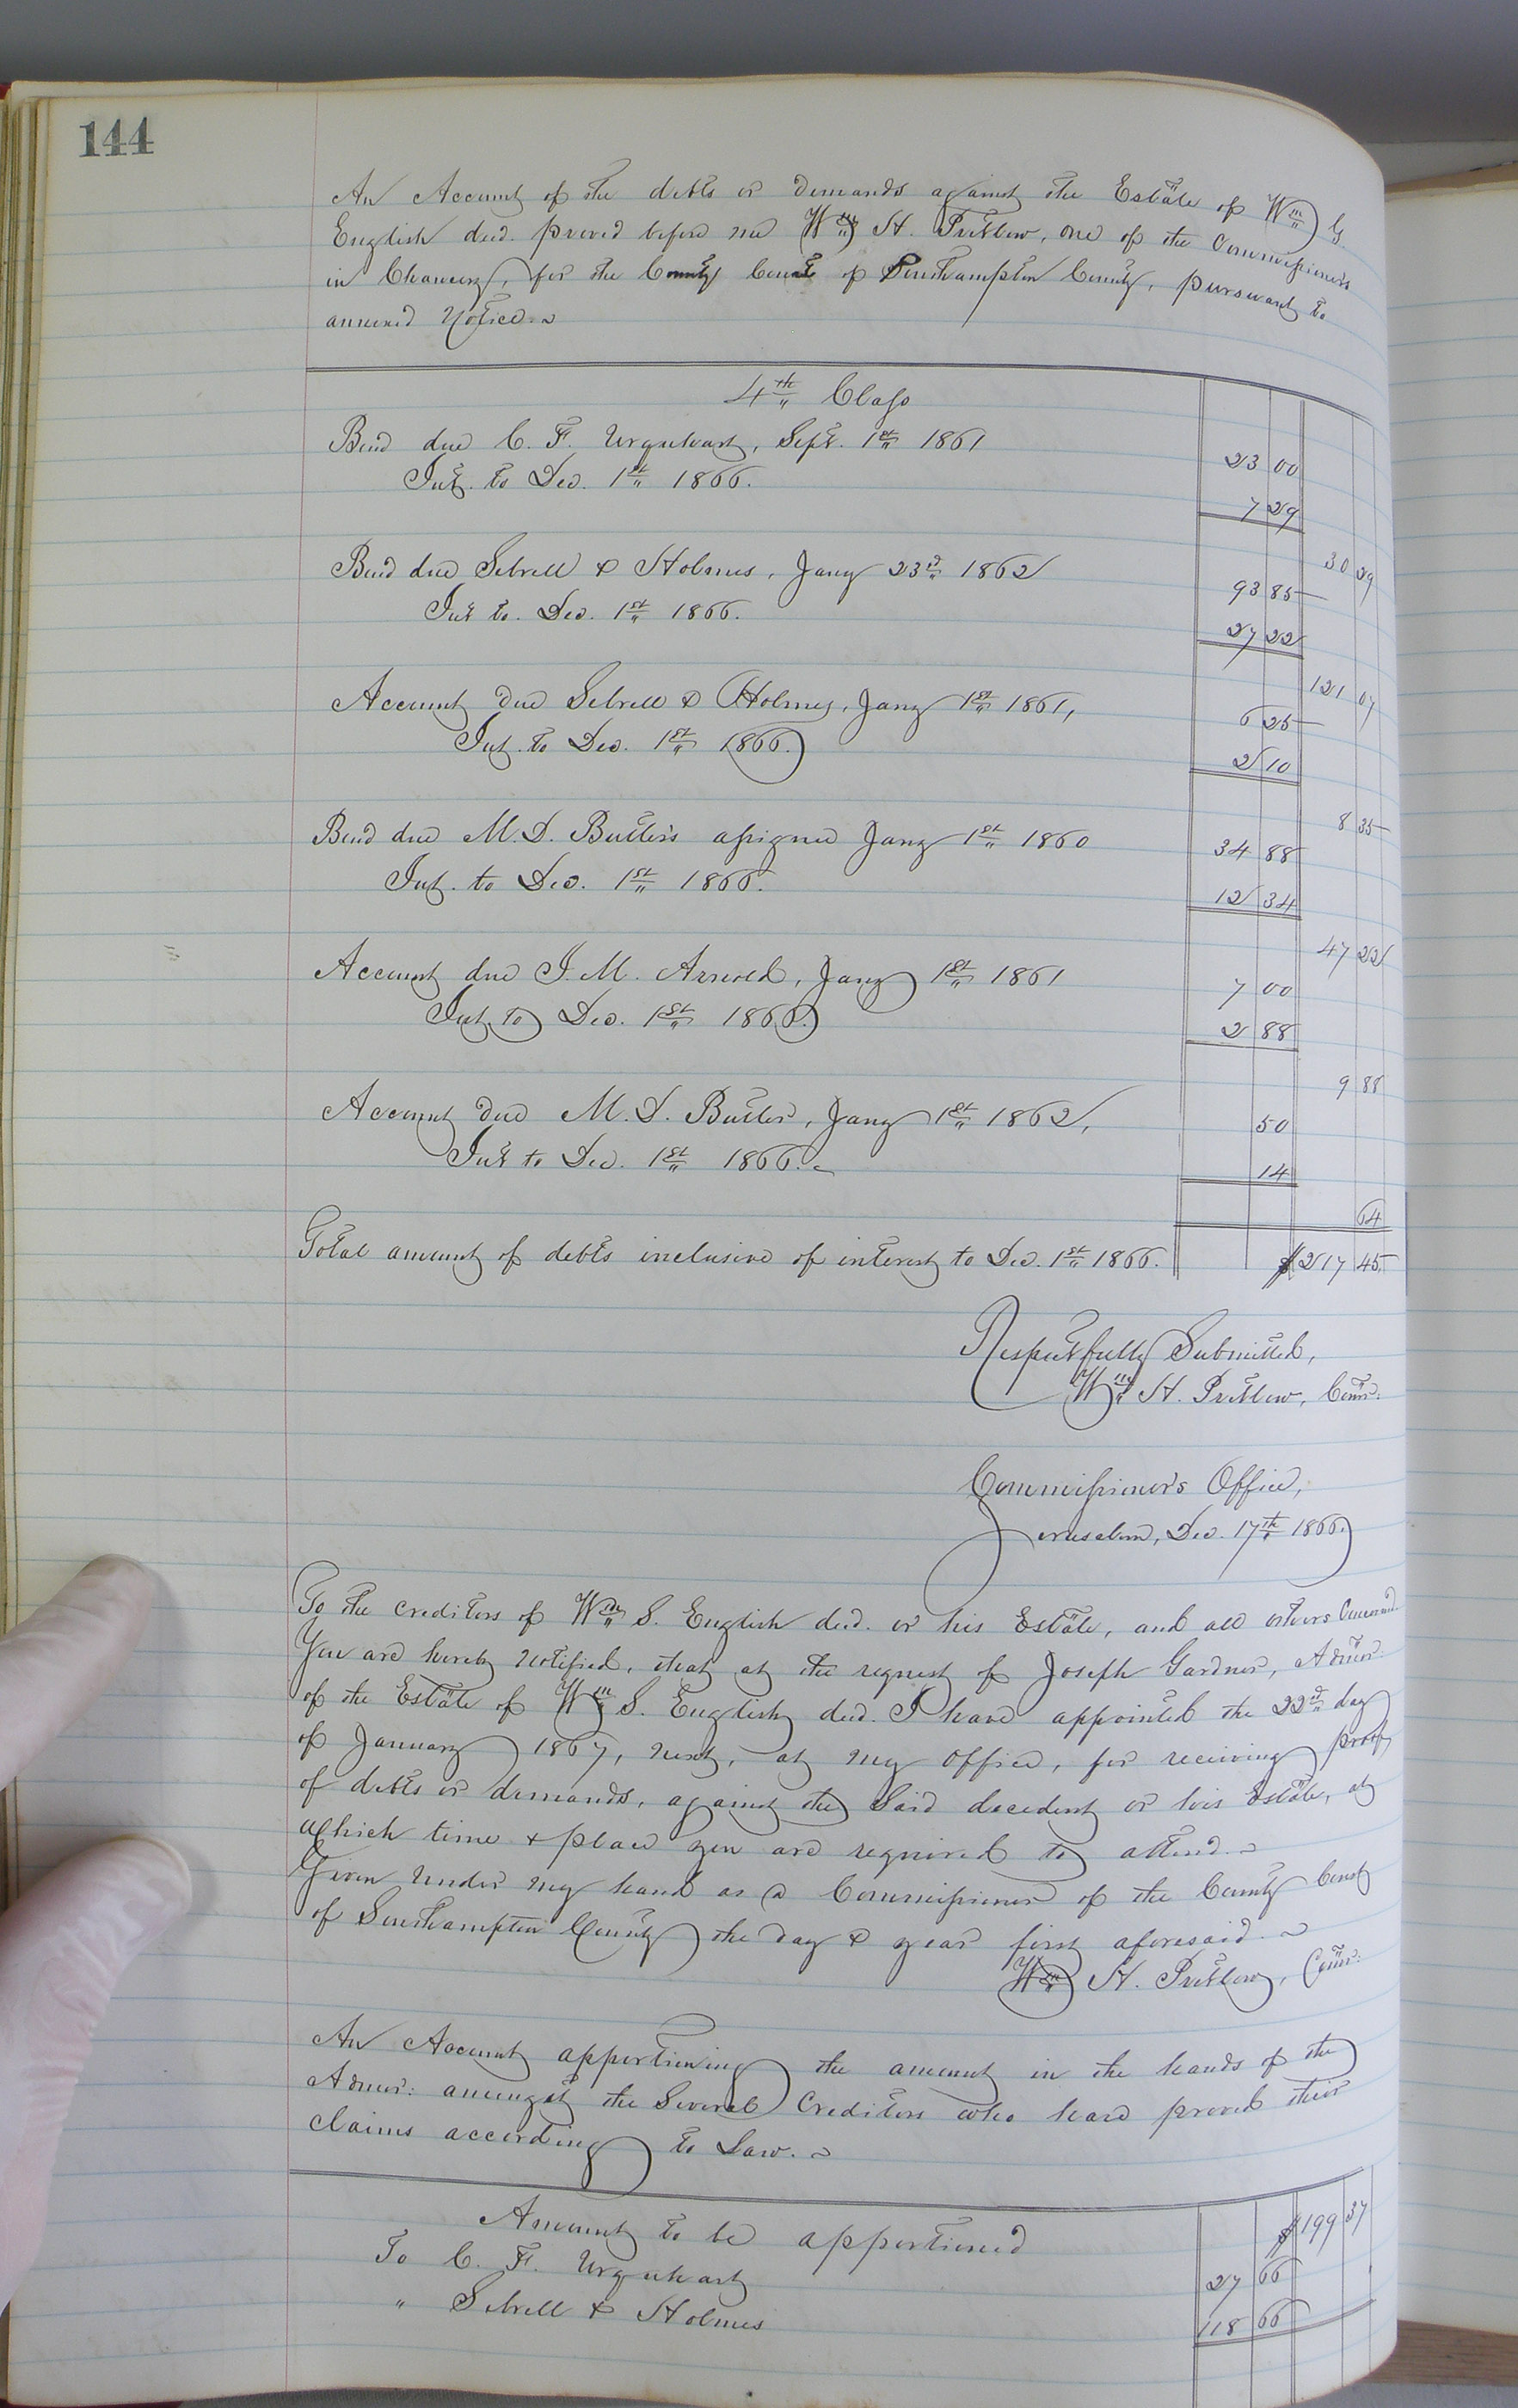 144
An Account of the debts or demands against the Estate of Wm S.
English decd. proved before me Wm H. Pretlow, one of the Commissioners
in Chancery, for the County Court of Southampton County, pursuant to
annexed Notice.
4th Class
Bond due C. F. Urquhart, Sept. 1st 1861 23 00
Int. to Dec. 1st 1866. 7 29
30 29
Bond due Sebrell & Holmes, Jany 23d 1862 93 85
Int to. Dec. 1st 1866. 27 22
121 07
Account due Sebrell & Holmes, Jany 1st 1861, 6 25
Int. to Dec. 1st 1866. 2 10
8 35
Bond due M. D. Butler's assignee Jany 1st 1860 34 88
Int. to Dec. 1st 1866. 12 34
47 22
Account due J. M. Arnold, Jany 1st 1861 7 00
Int to Dec. 1st 1866. 2 88
9 88
Account due M. D. Butler, Jany 1st 1862, 50
Int to Dec. 1st 1866. 14
64
Total amount of debts inclusive of interest to Dec. 1st 1866. $217 45
Respectfully Submitted,
Wm H. Pretlow, Comr:
Commissioner's Office,
Jerusalem, Dec. 17th 1866.
To the creditors of Wm S. English decd. or his Estate, and all others Concerned
You are hereby Notified, that at the request of Joseph Gardner, Admor.
of the Estate of Wm S. English decd. I have appointed the 22nd day
of January 1867, next, at my office, for receiving proof
of debts or demands, against the Said decedent or his Estate, at
which time & place you are required to attend.
Given under my hand as a Commissioner of the County Court
of Southampton County the day & year first aforesaid.
Wm H. Pretlow, Comr:
An Account apportioning the amount in the hands of the
Admor: amongst the Several Creditors who have proved their
claims according to Law.
Amount to be apportioned $199 37
To C. F. Urquhart 27 66
" Sebrell & Holmes 118 66